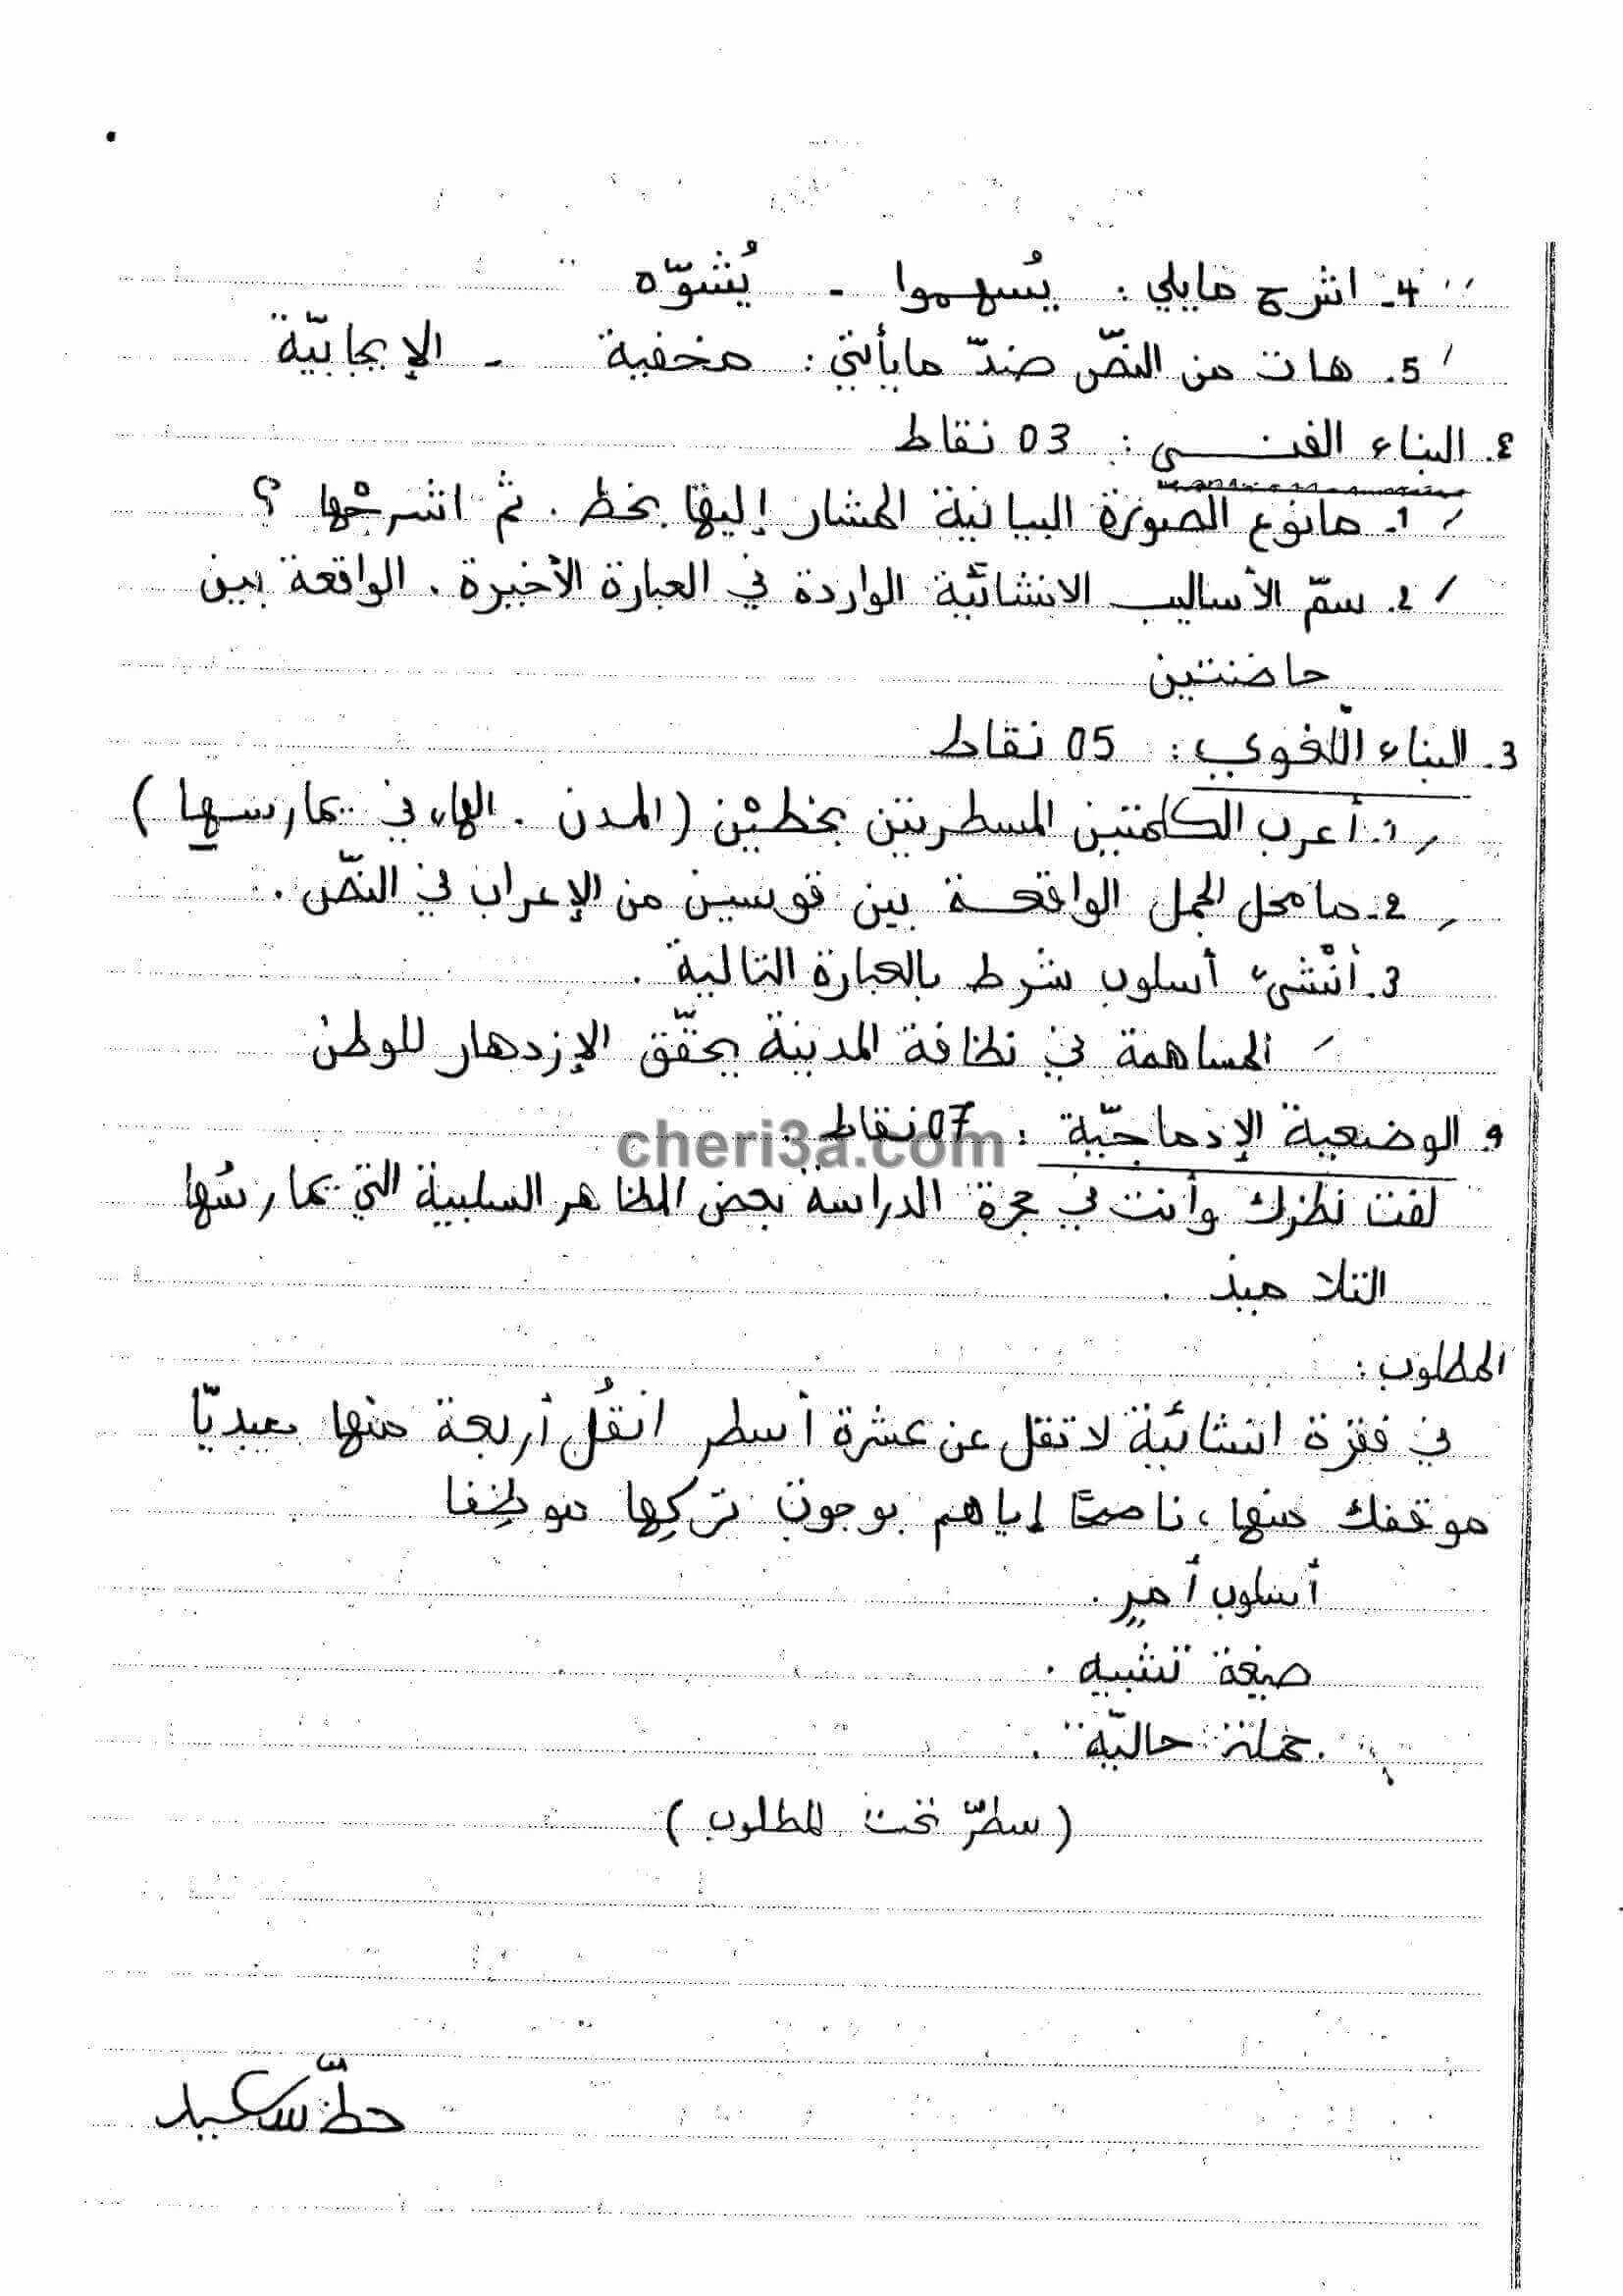 4- اشرح مايلي : يُسهموا - يُشوّه
5. هات من النصّ ضدّ مايأتي : مخفية - الإيجابيّة
2. البناء الفنــي : 03 نقاط
1. مانوع الصورة البيانية المشار إليها بخط . ثم اشرحْها ؟
2. سمّ الأساليب الانشائية الواردة في العبارة الأخيرة . الواقعة بين
حاضنتين
3. البناء اللّغوي : 05 نقاط
1. أعرب الكلمتين المسطريتين بخطيْن (المدن . الهاء في يمارسها)
2- ما محل الجمل الواقعة بين قوسين من الإعراب في النصّ .
3. أنْشئ أسلوب شرط بالعبارة التالية .
المساهمة في نظافة المدينة يحقّق الإزدهار للوطن
الوضعية الإدماجيّة : 07 نقاط .
cheri3a.com
لفت نظرك وأنت في حجرة الدراسة بعض المظاهر السلبية التي يمارسُها
التلاميذ .
المطلوب :
في فقرة انشائية لا تقل عن عشرة أسطر انقُل أربعة منها مبديّا
موقفك منها ، ناصحًا إياهم بوجوب تركِها موظِفا
أسلوب أمرٍ .
صيغة تشبيه .
جملة حاليّة .
(سطّر تحت المطلوب)
حظّ سعيد